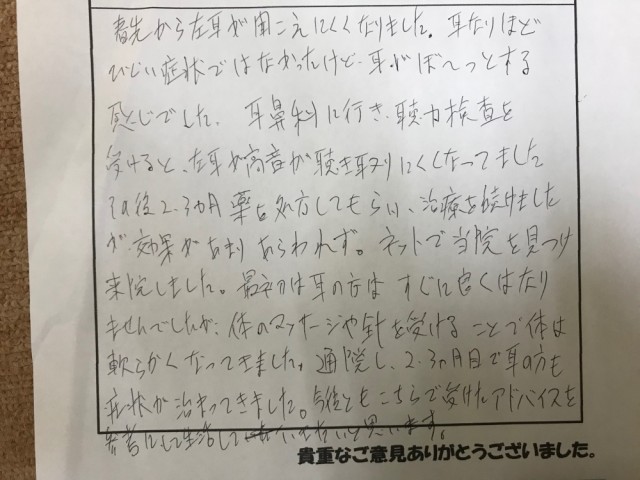 春先から左耳が聞こえにくくなりました。耳なりほど
ひどい症状ではなかったけど、耳がぼ〜っとする
感じでした。耳鼻科に行き、聴力検査を
受けると、左耳が高音が聴き取りにくくなってました
その後2.3ヵ月薬を処方してもらい、治療を続けました
が効果があまりあらわれず。ネットで当院を見つけ
来院しました。最初は耳の方はすぐに良くはなり
ませんでしたが、体のマッサージや針を受けることで体は
軟らかくなってきました。通院し、2.3ヵ月目で耳の方も
症状が治まってきました。今後ともこちらで受けたアドバイスを
参考にして生活していきたいと思います。
貴重なご意見ありがとうございました。